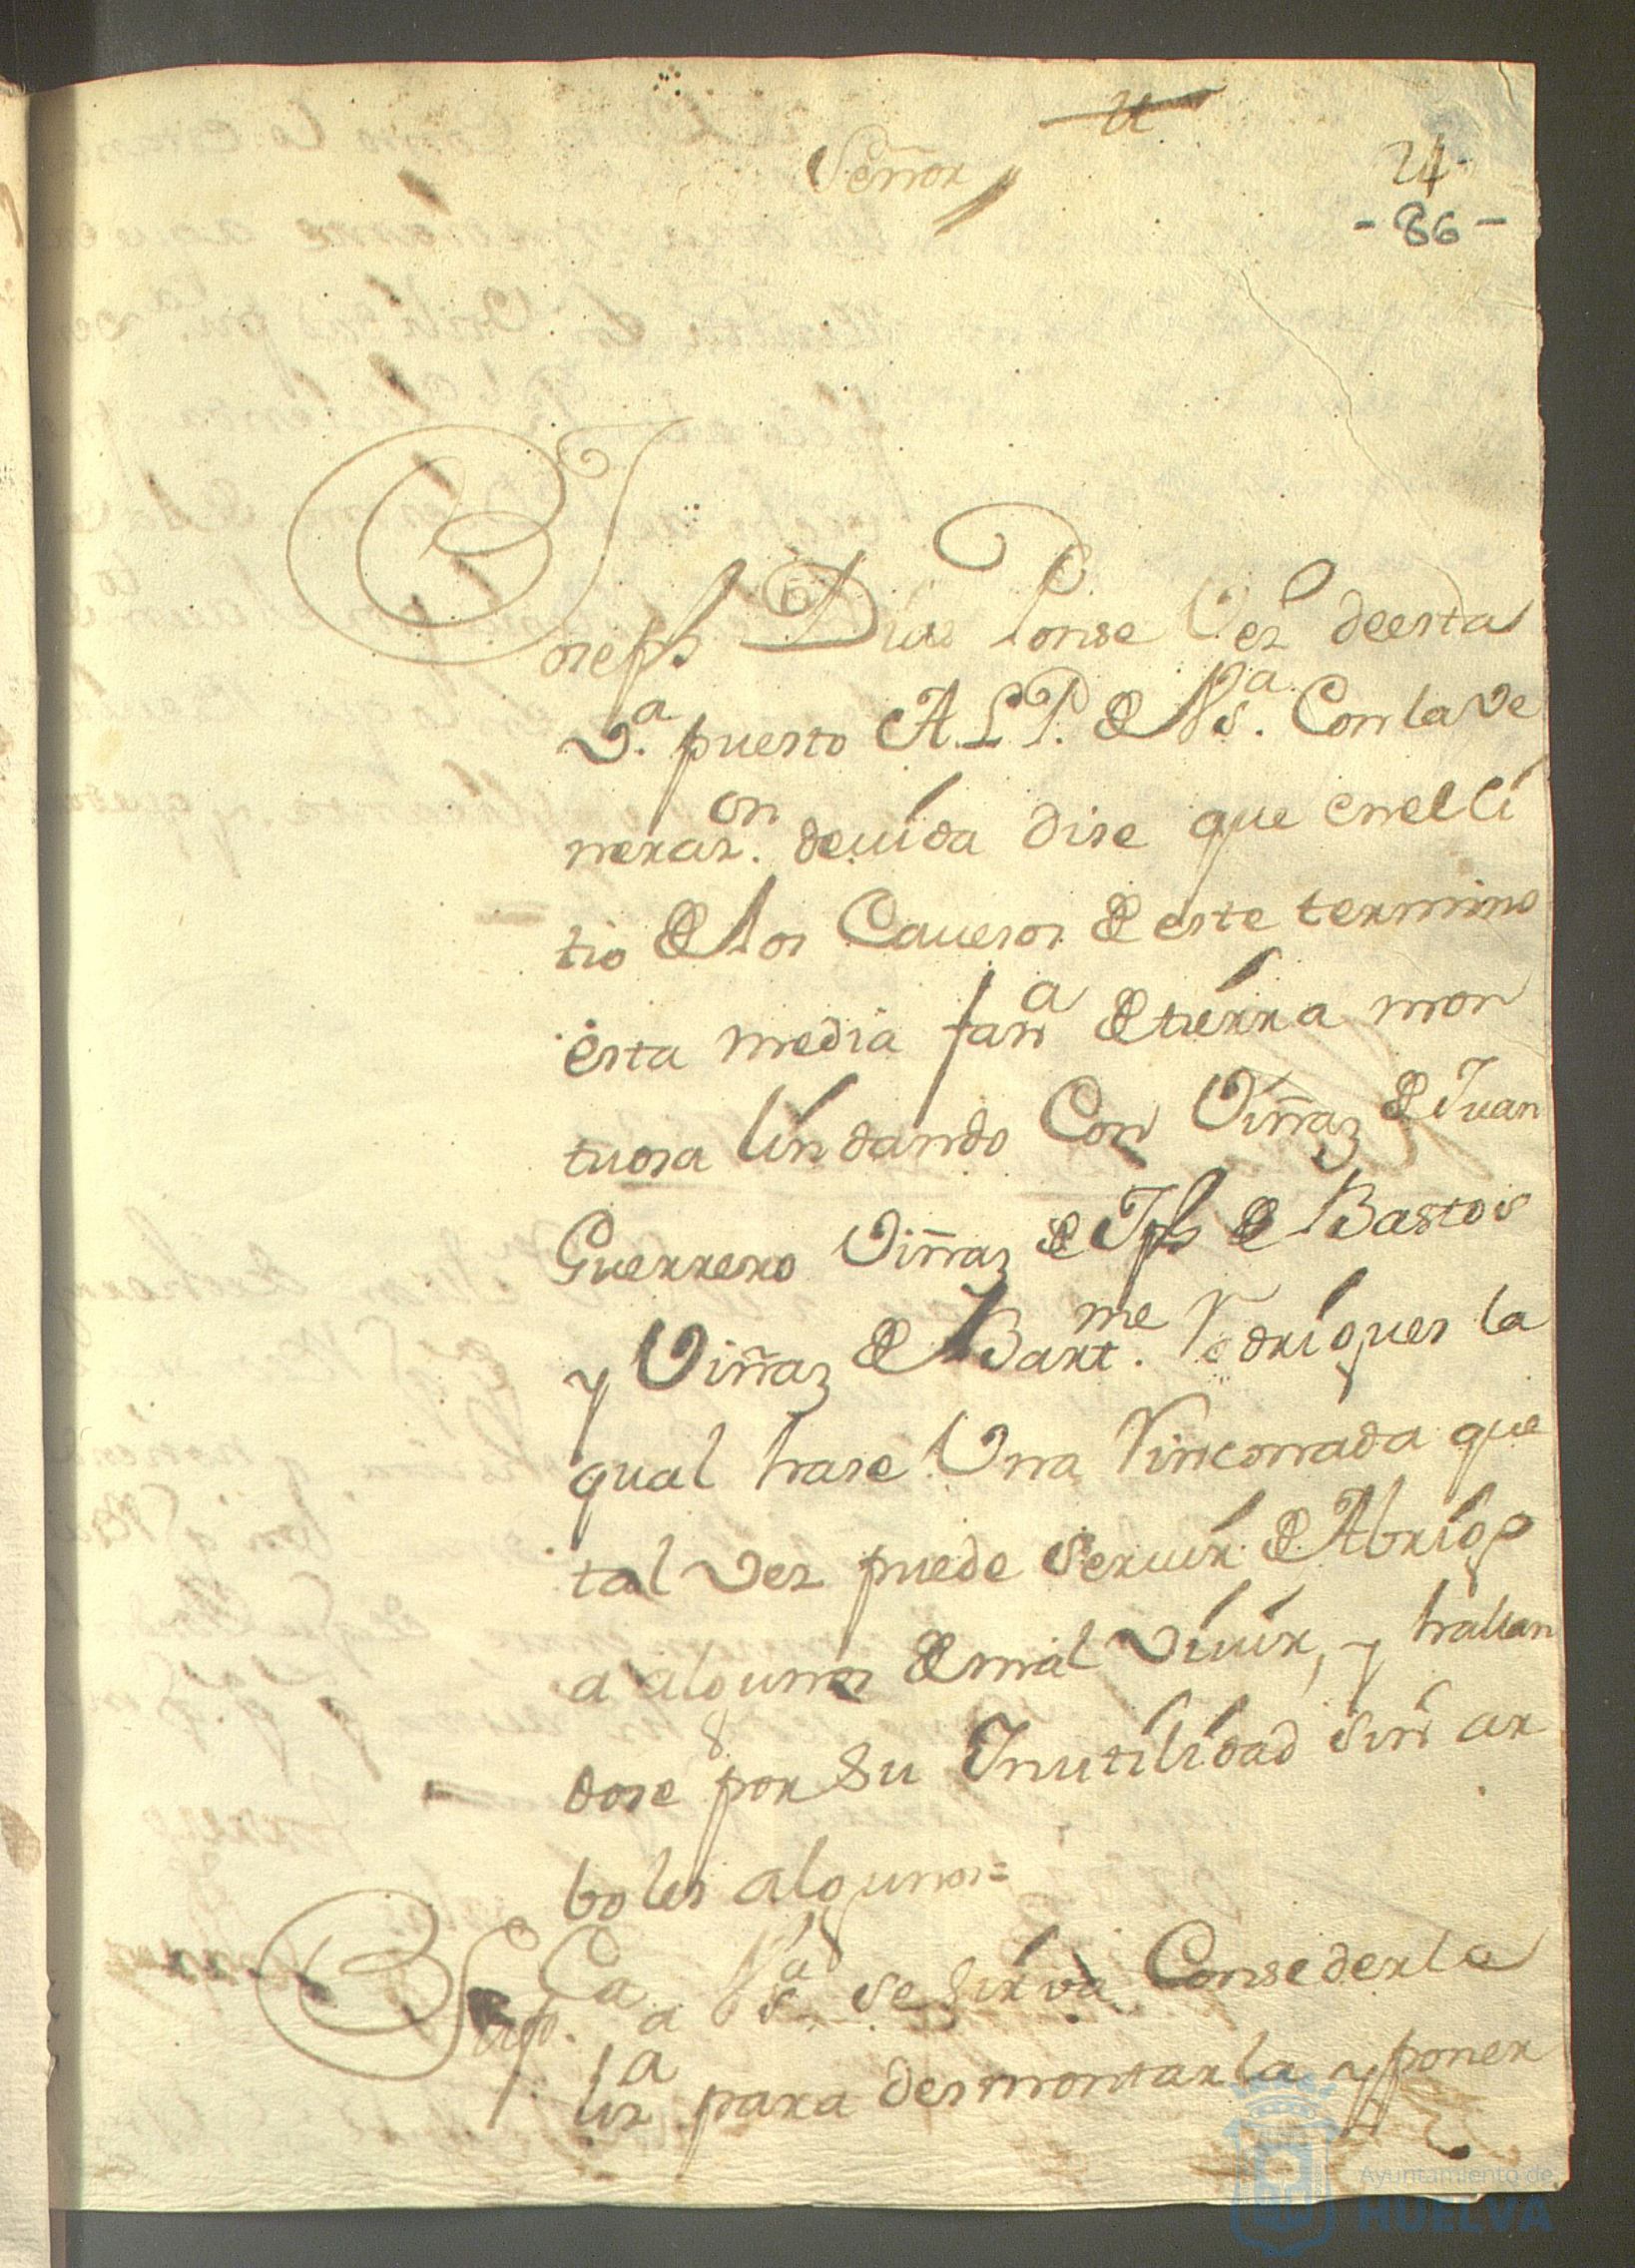 U
Señor
24
- 86 -
Joseph Dias Ponse Vez.º de esta
V.ª puesto A. L. P. de V.ª S.ª Con la Ve
neraz.on deuida dise que en el Si
tio de los Caueros de este termino
esta media fan.ª de tierra mon
tuosa lindando Con Viñas de Juan
Guerrero Viñas de Jph de Bastos
y Viñas de Bart.me Rodrigues la
qual hase Una Rinconada que
tal vez puede Seruir de Abrigo
a algunos de mal viuir, y hallan
dose por Su Inutilidad Sin ar
boles algunos =
Sup.Ca a V.S.ª se Sirva Consederle
liz.ª para desmontarla y poner
Ayuntamiento de
HUELVA